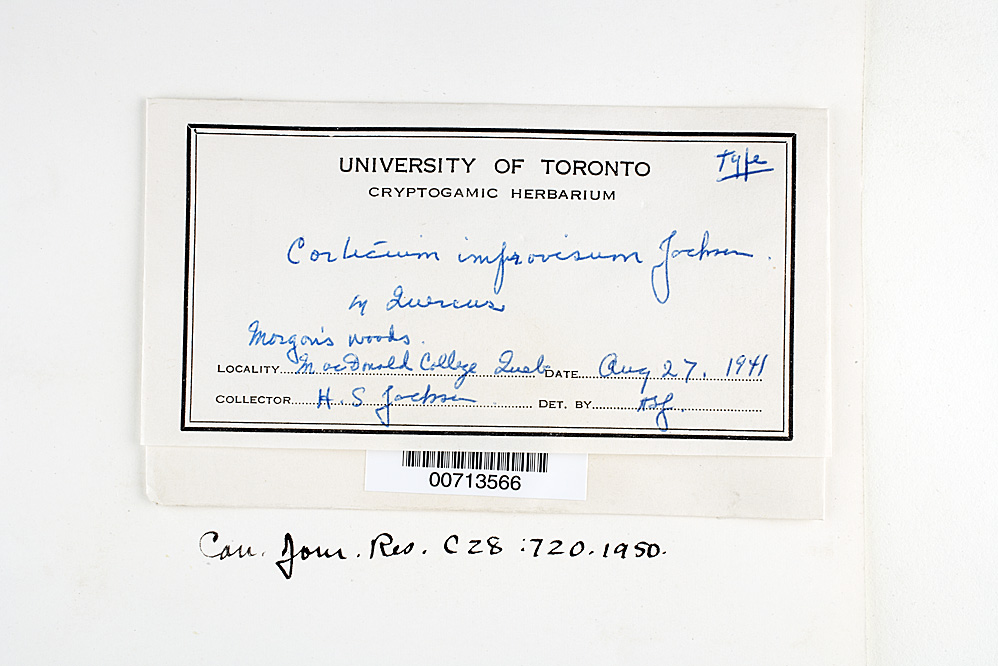 UNIVERSITY OF TORONTO
type
CRYPTOGAMIC HERBARIUM
Corticium improvisum Jackson.
on Quercus
Morgan's woods.
LOCALITY MacDonald College Queb. DATE Aug 27. 1941
COLLECTOR H. S Jackson DET. BY HSJ.
00713566
Can. Jour. Res. C28:720.1950.